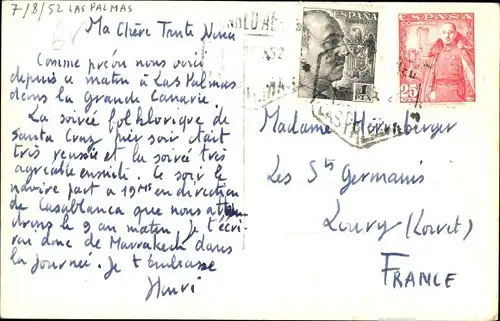 7/8/52 LAS PALMAS
Ma Chère Tante Nini
Comme prévu nous voici
depuis ce matin à Las Palmas
dans la Grande Canarie.
La soirée folklorique de
Santa Cruz hier soir était
très reussie et la soirée très
agréable ensuite. Ce soir le
navire part à 19 hrs en direction
de Casablanca que nous atten
drons le 9 au matin. Je t'écri
rai donc de Marrakech dans
la journée. Je t'embrasse
Henri
ESPAÑA
1 PTA
ESPAÑA
25
LAS PALMAS
Madame
Les Sts Germains
Lourry (Loiret)
FRANCE